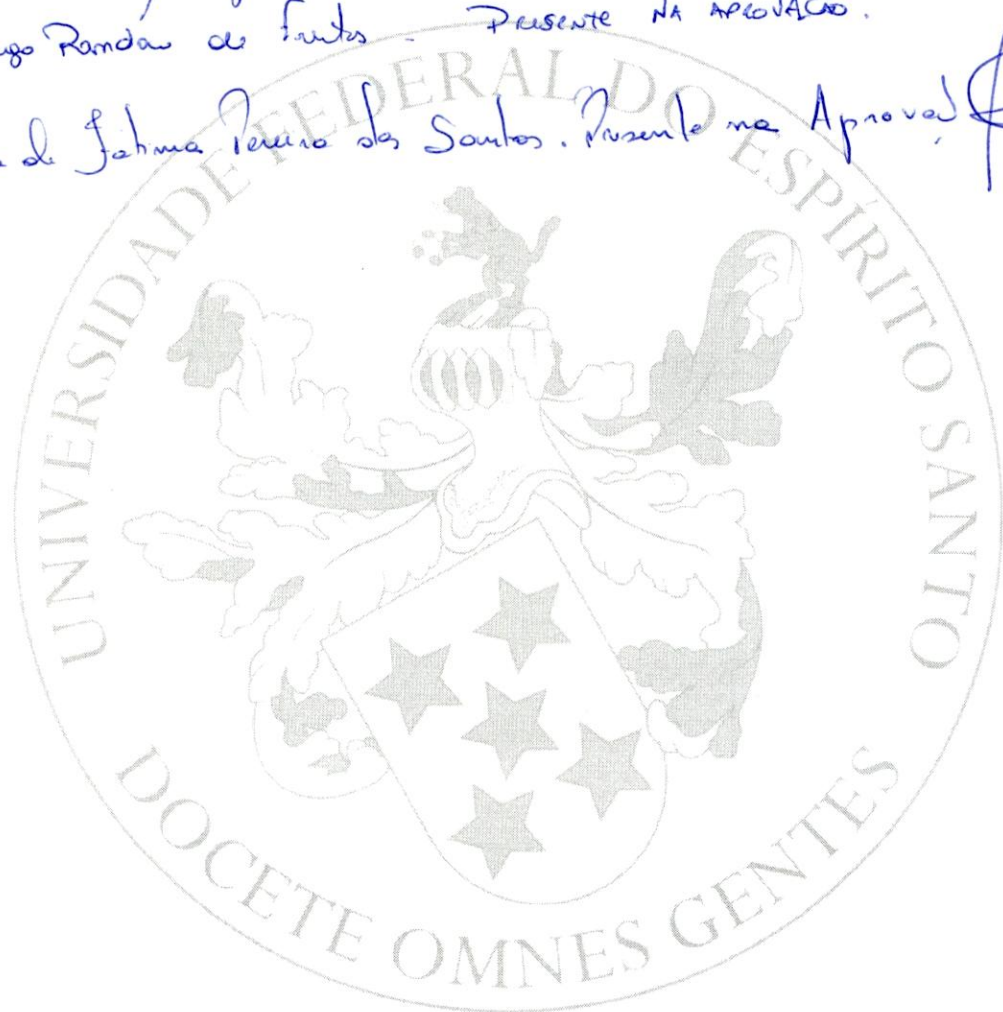 de Freitas - PRESENTE NA APROVAÇÃO.
de Fatima Pereira dos Santos. Presente na
UNIVERSIDADE FEDERAL DO ESPÍRITO SANTO
DOCETE OMNES GENTES